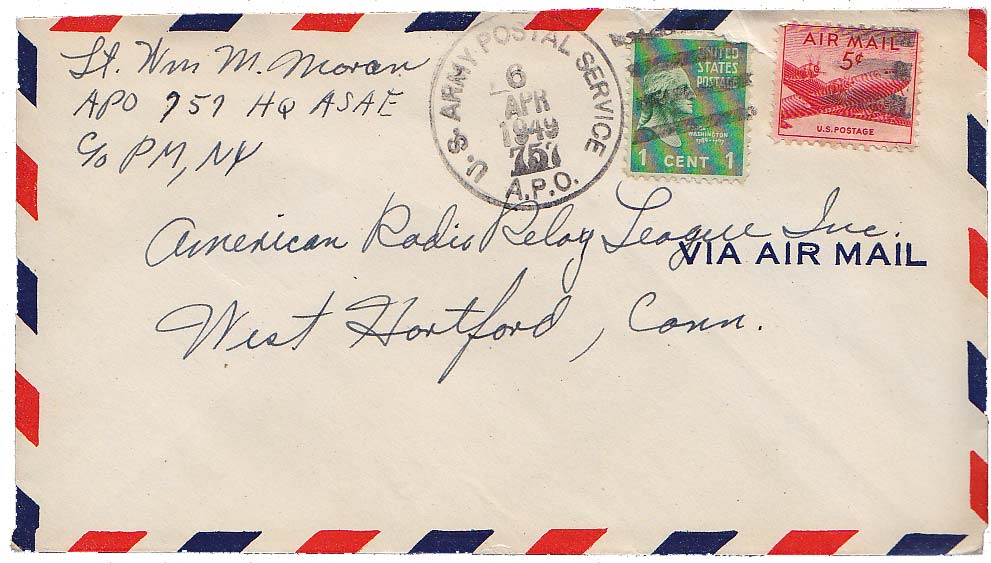 Lt. Wm M. Moran
APO 757 HQ ASAE
c/o PM, NY
U.S. ARMY POSTAL SERVICE
6
APR
1949
757
A.P.O.
UNITED
STATES
POSTAGE
WASHINGTON
1789-1797
1 CENT 1
AIR MAIL
5¢
U.S. POSTAGE
American Radio Relay League Inc.
VIA AIR MAIL
West Hartford, Conn.